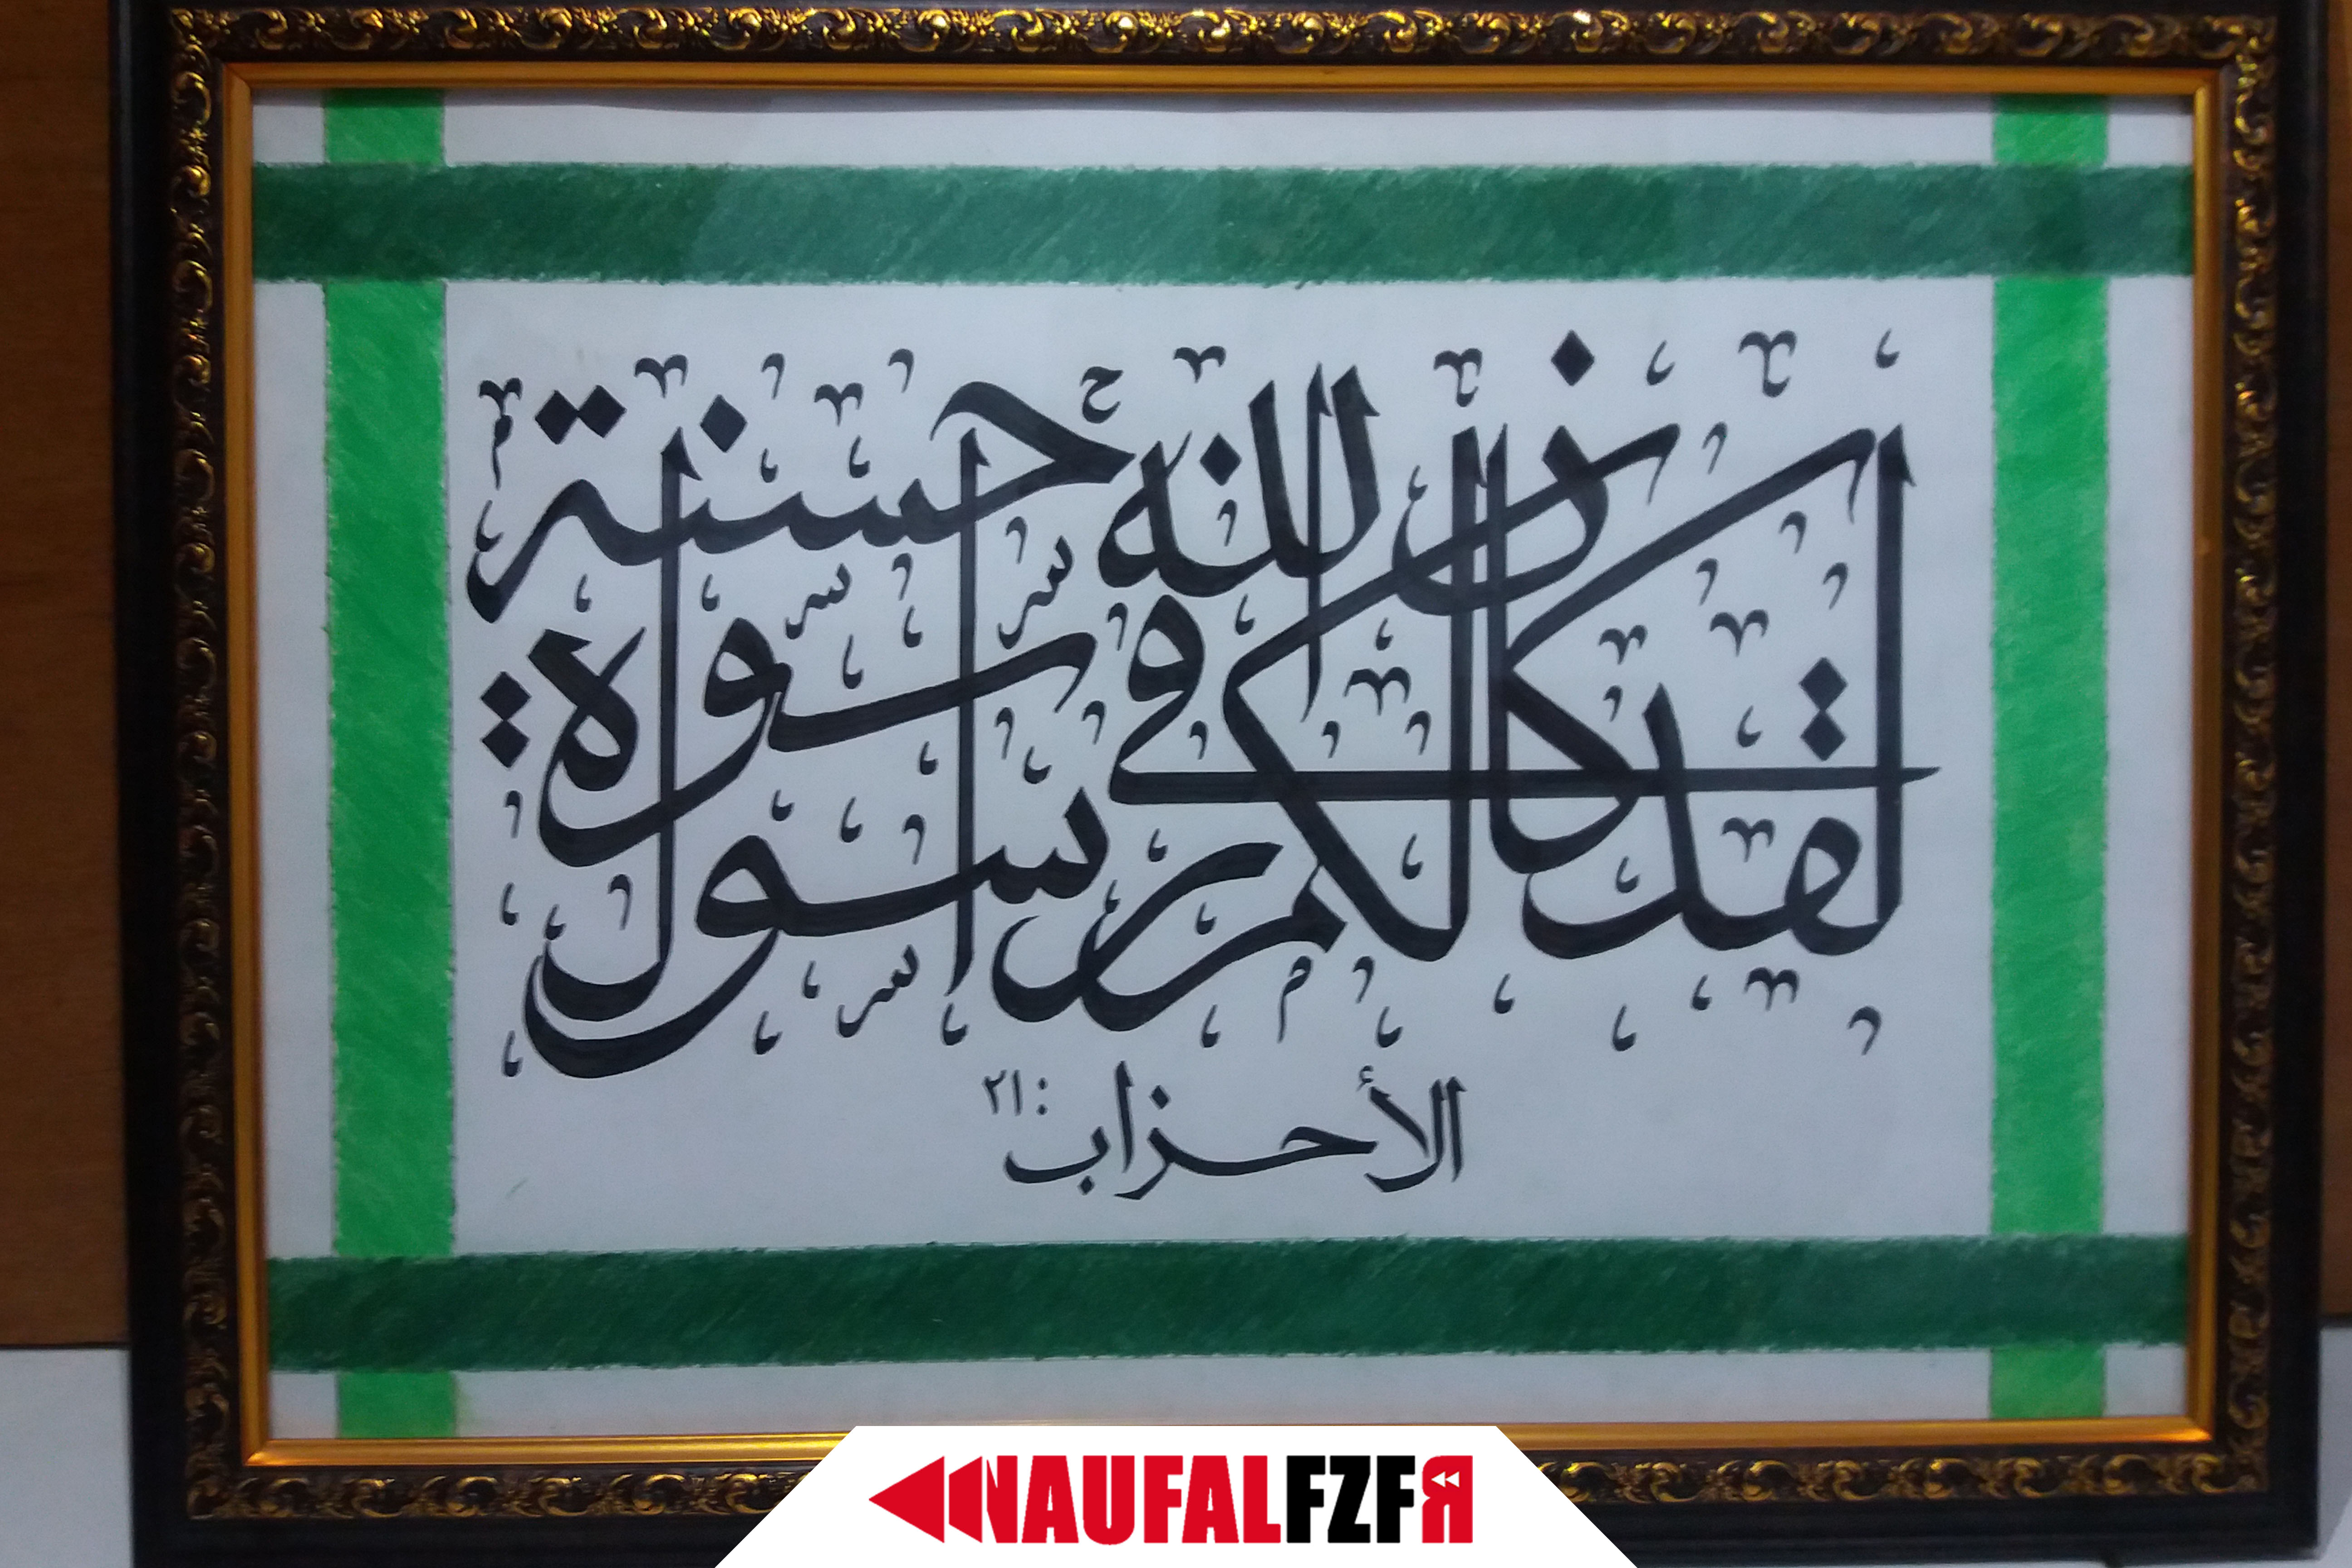 لقد كان لكم في رسول الله أسوة حسنة
الأحزاب : ٢١
NAUFALFZFR